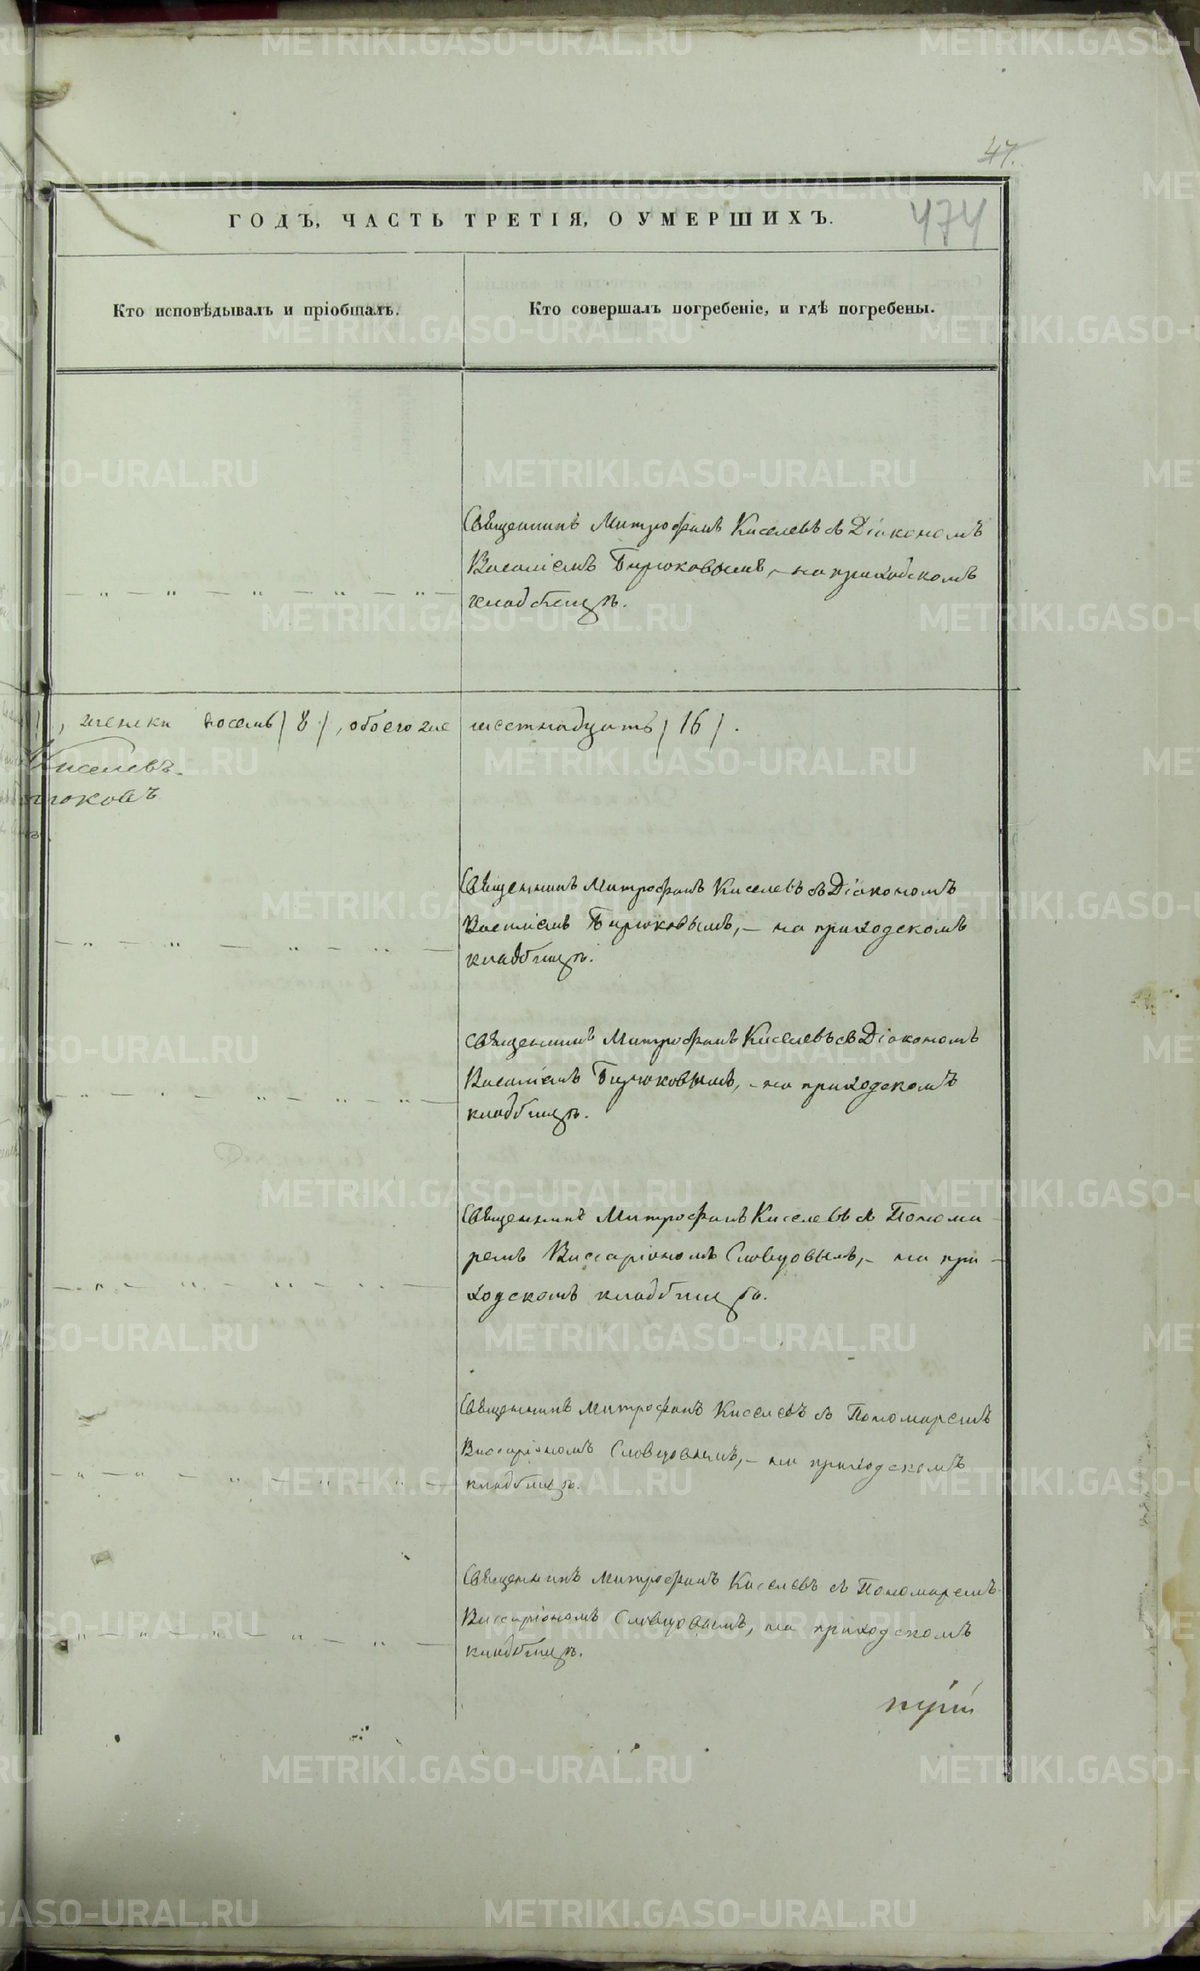 47.
474
ГОДЪ, ЧАСТЬ ТРЕТІЯ, О УМЕРШИХЪ.
Кто исповѣдывалъ и пріобщалъ.
Кто совершалъ погребеніе, и гдѣ погребены.
Священникъ Митрофанъ Киселевъ съ Діакономъ
Василіемъ Бирюковымъ, – на приходскомъ
кладбищѣ.
женска восемь (8), обоего же шестнадцать (16).
Киселевъ.
рюковъ
Священникъ Митрофанъ Киселевъ съ Діакономъ
Василіемъ Бирюковымъ, – на приходскомъ
кладбищѣ.
Священникъ Митрофанъ Киселевъ съ Діакономъ
Василіемъ Бирюковымъ, – на приходскомъ
кладбищѣ.
Священникъ Митрофанъ Киселевъ съ Понома-
ремъ Виссаріономъ Словцовымъ, – на при-
ходскомъ кладбищѣ.
Священникъ Митрофанъ Киселевъ съ Пономаремъ
Виссаріономъ Словцовымъ, – на приходскомъ
кладбищѣ.
Священникъ Митрофанъ Киселевъ съ Пономаремъ
Виссаріономъ Словцовымъ, на приходскомъ
кладбищѣ.
METRIKI.GASO-URAL.RU